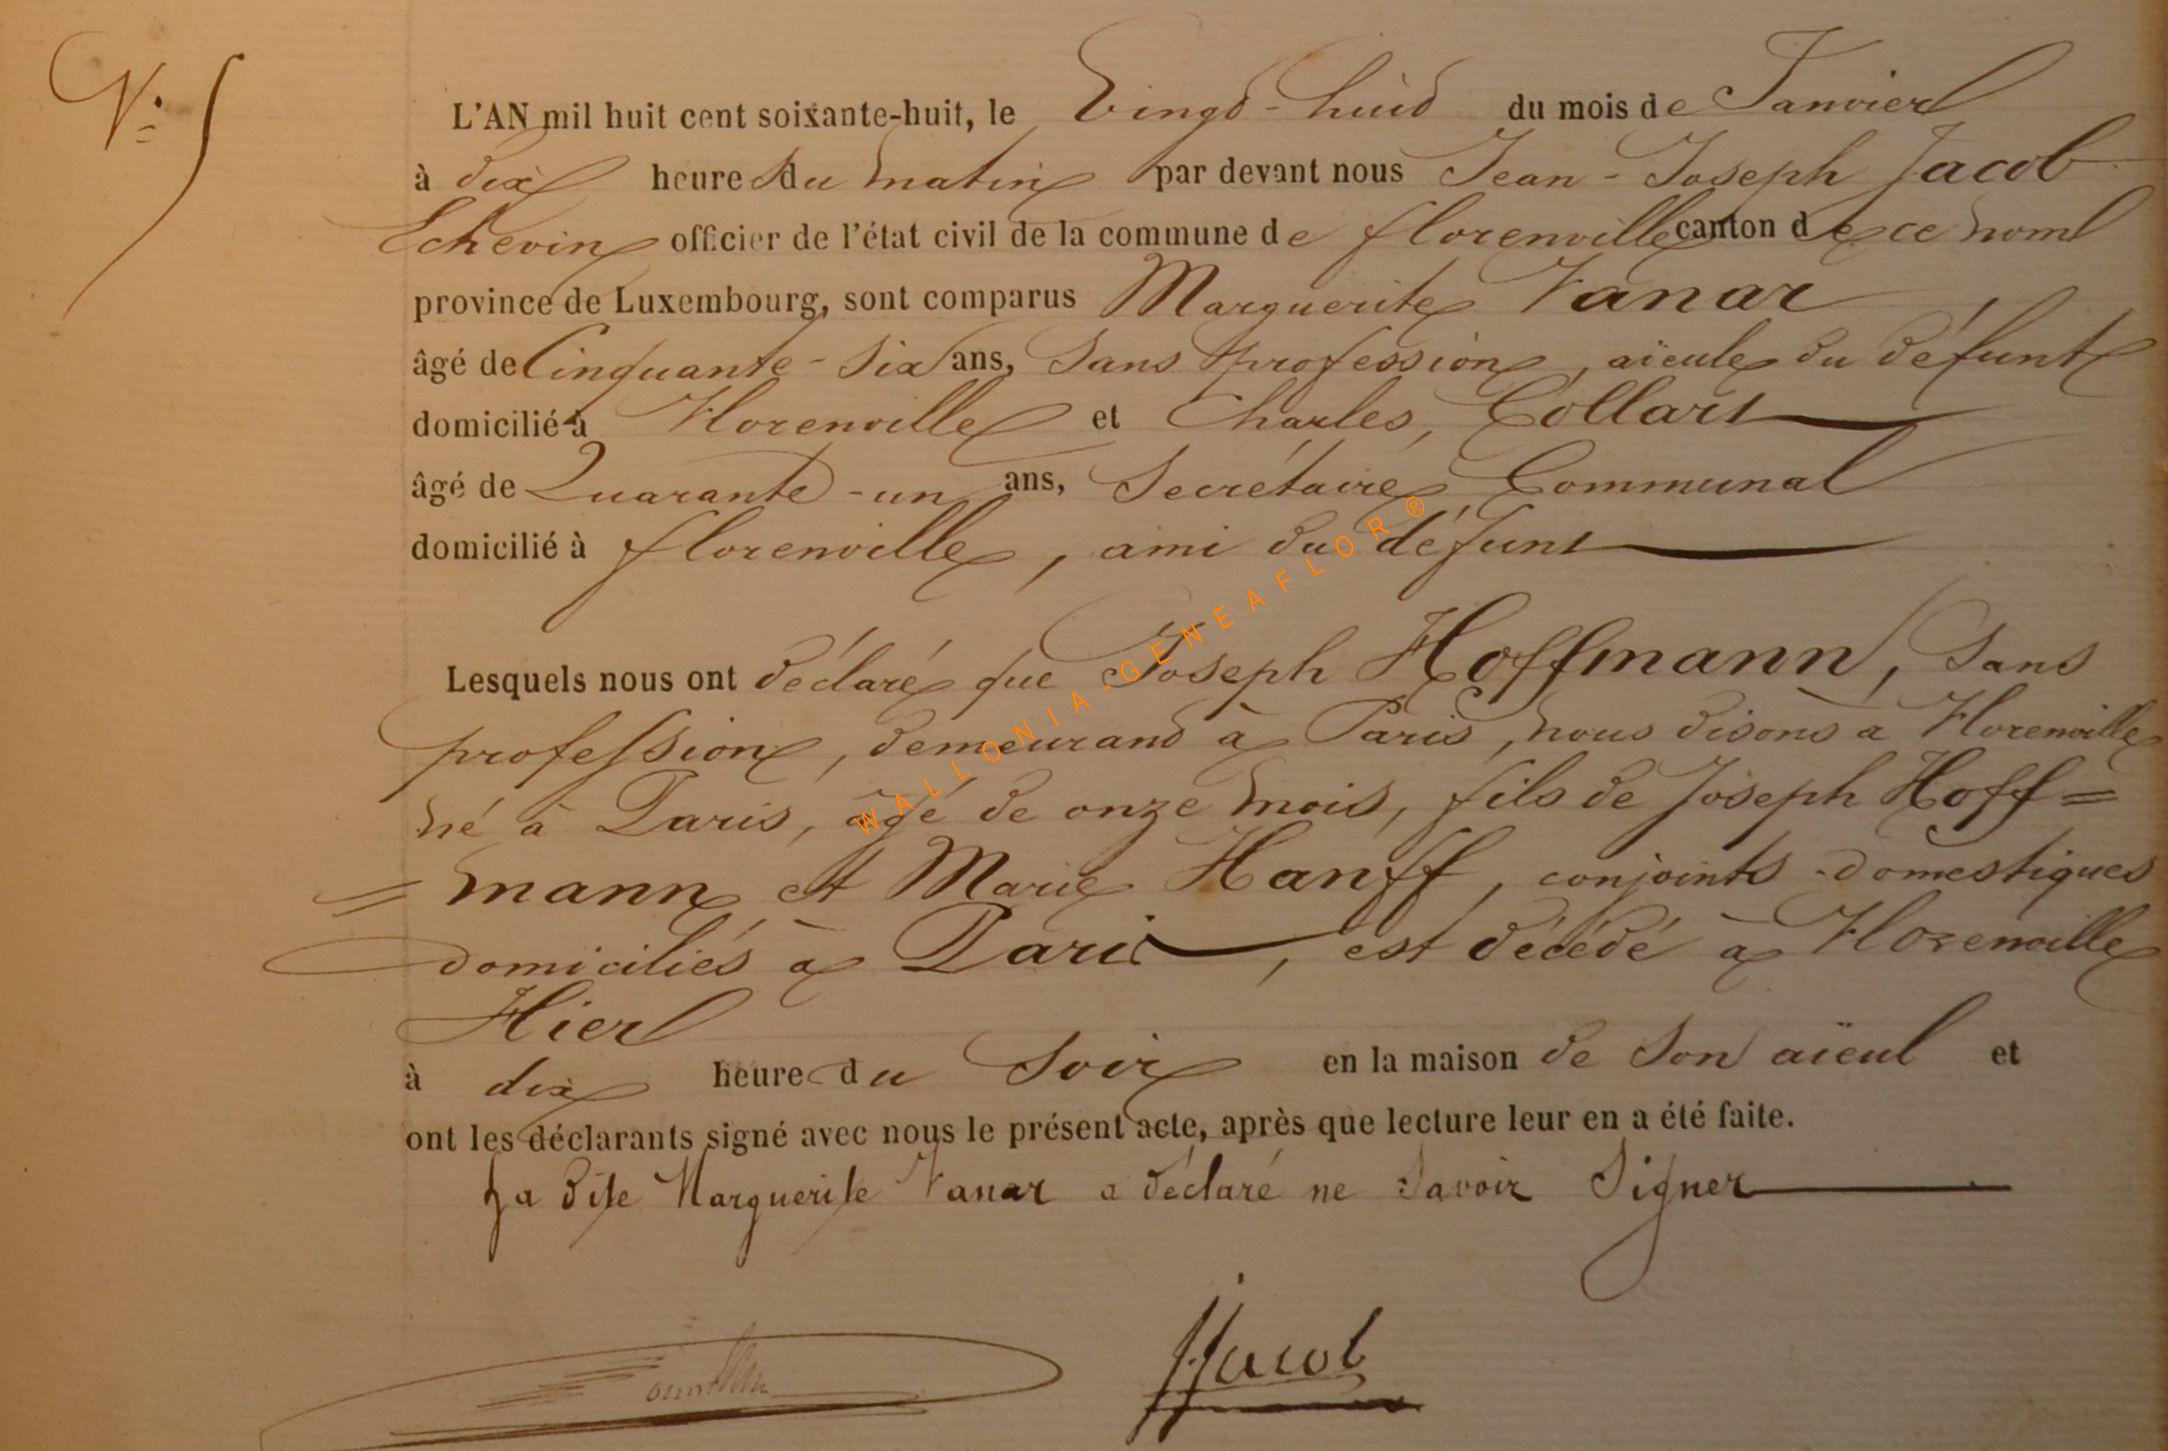 N° 5
L'AN mil huit cent soixante-huit, le Vingt-huit du mois de Janvier
à dix heures du matin par devant nous Jean-Joseph Jacob
Echevin officier de l'état civil de la commune de florenville canton de ce nom
province de Luxembourg, sont comparus Marguerite Vanar,
âgé de Cinquante-Six ans, Sans profession, aïeule du défunt
domicilié à Florenville et Charles, Collart
âgé de Quarante-un ans, Secrétaire Communal
domicilié à florenville, ami du défunt
WALLONIA-GENEAFLOR®
Lesquels nous ont déclaré que Joseph Hoffmann, Sans
profession, demeurant à Paris, nous disons à Florenville
né à Paris, âgé de onze mois, fils de Joseph Hoff=
=mann et Marie Hanff, conjoints domestiques
domiciliés à Paris, est décédé à Florenville
Hier
à dix heures du Soir en la maison de Son aïeul et
ont les déclarants signé avec nous le présent acte, après que lecture leur en a été faite.
La dite Marguerite Vanar a déclaré ne Savoir Signer
JJacob